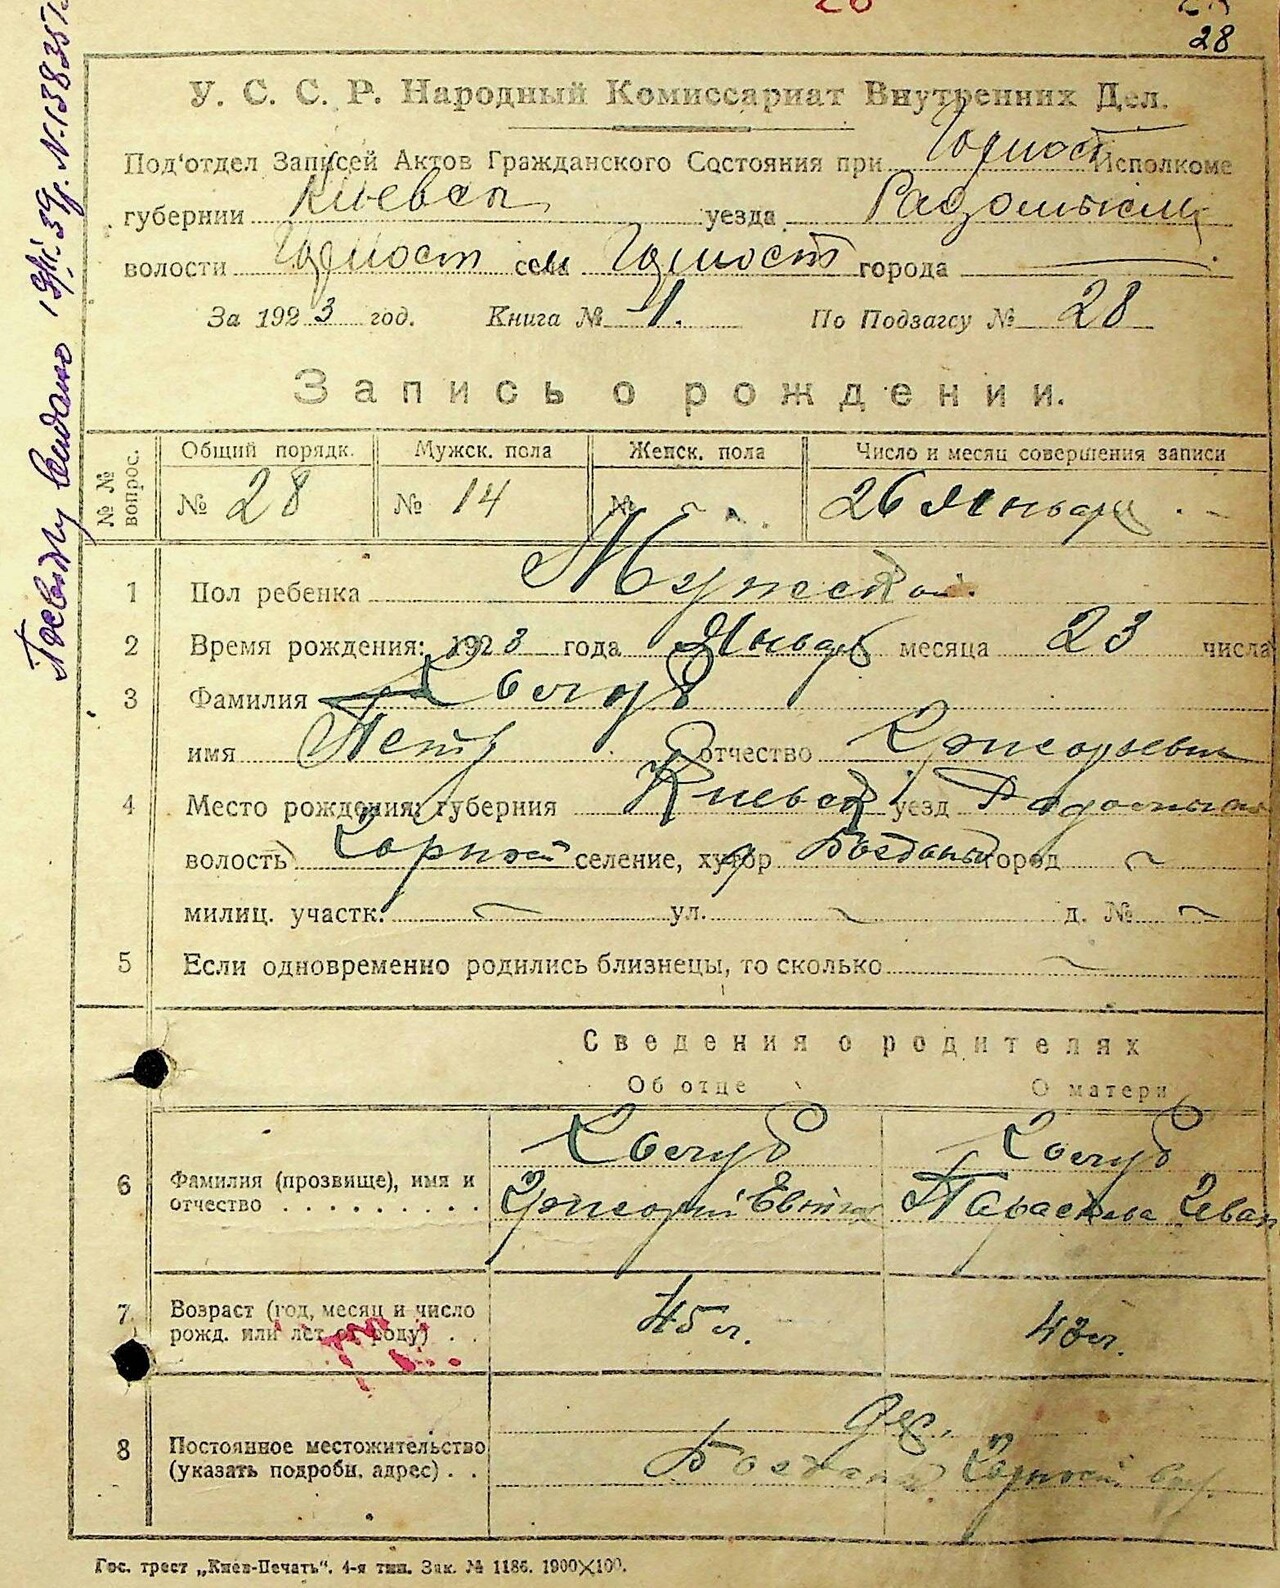 28
28
У. С. С. Р. Народный Комиссариат Внутренних Дел.
Под'отдел Записей Актов Гражданского Состояния при Горност Исполкоме
губернии Киевск уезда Радомысльск
волости Горност села Горност города —
За 1923 год. Книга № 1. По Подзагсу № 28
Запись о рождении.
№ № вопрос. Общий порядк. Мужск. пола Женск. пола Число и месяц совершения записи
№ 28 № 14 № 26 Января
1 Пол ребенка Мужской.
2 Время рождения: 1923 года Январь месяца 23 числа
3 Фамилия Кочуб
имя Петр отчество Григорьевич
4 Место рождения: губерния Киевск уезд Радомысл
волость Горност селение, хутор Богданы город ~
милиц. участк. ~ ул. ~ д. № ~
5 Если одновременно родились близнецы, то сколько ~
Сведения о родителях
Об отце О матери
6 Фамилия (прозвище), имя и отчество Кочуб Кочуб
Григорий Парасковья Иван
7 Возраст (год, месяц и число рожд. или лет от роду) 45 л. 43 л.
8 Постоянное местожительство (указать подробн. адрес) дер.
Богданы Горност вол.
Гос. трест „Киев-Печать". 4-я тип. Зак. № 1186. 1900×100.
выдано 39г. №138357